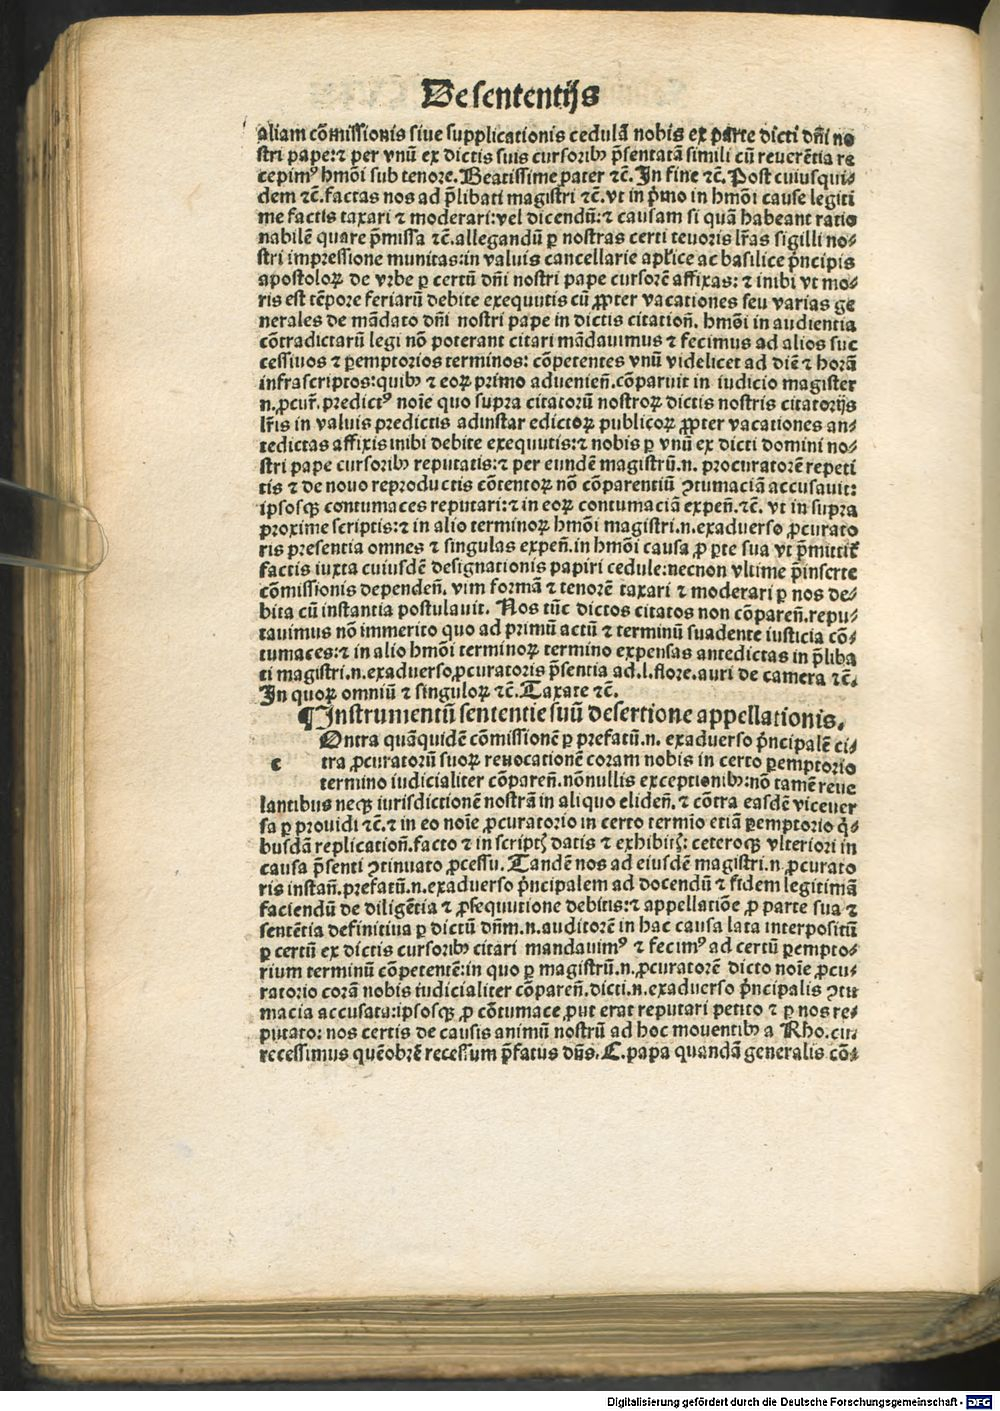 De sententijs
aliam cōmissionis siue supplicationis cedulā nobis ex parte dicti dn̄i no
stri pape:⁊ per vnū ex dictis suis cursoribꝫ p̄sentatā simili cū reuerētia re
cepimꝰ hmōi sub tenore. Beatissime pater ⁊c̄. In fine ⁊c̄. Post cuiusqui⸗
dem ⁊c̄. factas nos ad p̄libati magistri ⁊c̄. vt in p̄mo in hmōi cause legiti
me factis taxari ⁊ moderari: vel dicendū:⁊ causam si quā habeant ratio
nabilē quare p̄missa ⁊c̄. allegandū ꝑ nostras certi teuoris lr̄as sigilli no⸗
stri impressione munitas: in valuis cancellarie apl̄ice ac basilice p̄ncipis
apostoloꝝ de vrbe ꝑ certū dn̄i nostri pape cursorē affixas: ⁊ inibi vt mo⸗
ris est tēpore feriarū debite exequutis cū ꝓpter vacationes seu varias ge
nerales de mādato dn̄i nostri pape in dictis citation̄. hmōi in audientia
cōtradictarū legi nō poterant citari mādauimus ⁊ fecimus ad alios suc
cessiuos ⁊ ꝑemptorios terminos: cōpetentes vnū videlicet ad diē ⁊ horā
infrascriptos: quibꝫ ⁊ eoꝝ primo aduenien̄. cōparuit in iudicio magister
n. ꝓcur̄. predictꝰ noīe quo supra citatorū nostroꝝ dictis nostris citatorijs
lr̄is in valuis predictis adinstar edictoꝝ publicoꝝ ꝓpter vacationes an⸗
tedictas affixis inibi debite exequutis:⁊ nobis ꝑ vnū ex dicti domini no⸗
stri pape cursoribꝫ reputatis:⁊ per eundē magistrū.n. procuratorē repeti
tis ⁊ de nouo reproductis cōtentoꝝ nō cōparentiū ꝯtumaciā accusauit:
ipsosqꝫ contumaces reputari:⁊ in eoꝝ contumaciā expen̄. ⁊c̄. vt in supra
proxime scriptis:⁊ in alio terminoꝝ hmōi magistri.n. exaduerso ꝓcurato
ris presentia omnes ⁊ singulas expen̄. in hmōi causa ꝓ ꝑte sua vt p̄mittit̄
factis iuxta cuiusdē designationis papiri cedule: necnon vltime p̄inserte
cōmissionis dependen̄. vim formā ⁊ tenorē taxari ⁊ moderari ꝑ nos de⸗
bita cū instantia postulauit. Nos tūc dictos citatos non cōparen̄. repu⸗
tauimus nō immerito quo ad primū actū ⁊ terminū suadente iusticia cō⸗
tumaces:⁊ in alio hmōi terminoꝝ termino expensas antedictas in p̄liba
ti magistri.n. exaduerso ꝓcuratoris p̄sentia ad.l. flore. auri de camera ⁊c̄.
In quoꝝ omniū ⁊ singuloꝝ ⁊c̄. Taxate ⁊c̄.
¶ Instrumentū sententie suū desertione appellationis.
c Ontra quāquidē cōmissionē ꝑ prefatū.n. exaduerso p̄ncipalē ci⸗
tra ꝓcuratorū suoꝝ reuocationē coram nobis in certo ꝑemptorio
termino iudicialiter cōparen̄. nōnullis exceptionibꝫ: nō tamē reue
lantibus neqꝫ iurisdictionē nostrā in aliquo eliden̄. ⁊ cōtra easdē viceuer
sa ꝑ prouidi ⁊c̄. ⁊ in eo noīe ꝓcuratorio in certo termīo etiā ꝑemptorio q̄⸗
busdā replication̄. facto ⁊ in scriptꝭ datis ⁊ exhibitꝭ: ceteroqꝫ vlteriori in
causa p̄senti ꝯtinuato ꝓcessu. Tandē nos ad eiusdē magistri.n. ꝓcurato
ris instan̄. prefatū.n. exaduerso p̄ncipalem ad docendū ⁊ fidem legitimā
faciendū de diligētia ⁊ ꝓsequutione debitis:⁊ appellatiōe ꝓ parte sua ⁊
sentētia definitiua ꝑ dictū dn̄m.n. auditorē in hac causa lata interpositū
ꝑ certū ex dictis cursoribꝫ citari mandauimꝰ ⁊ fecimꝰ ad certū ꝑempto⸗
rium terminū cōpetentē: in quo ꝑ magistrū.n. ꝓcuratorē dicto noīe ꝓcu⸗
ratorio corā nobis iudicialiter cōparen̄. dicti.n. exaduerso p̄ncipalis ꝯtu
macia accusata: ipsosqꝫ ꝓ cōtumace ꝓut erat reputari petito ⁊ ꝑ nos re⸗
putato: nos certis de causis animū nostrū ad hoc mouentibꝫ a Rho. cu.
recessimus quēobrē recessum p̄fatus dn̄s. C. papa quandā generalis cō⸗
Digitalisierung gefördert durch die Deutsche Forschungsgemeinschaft - DFG